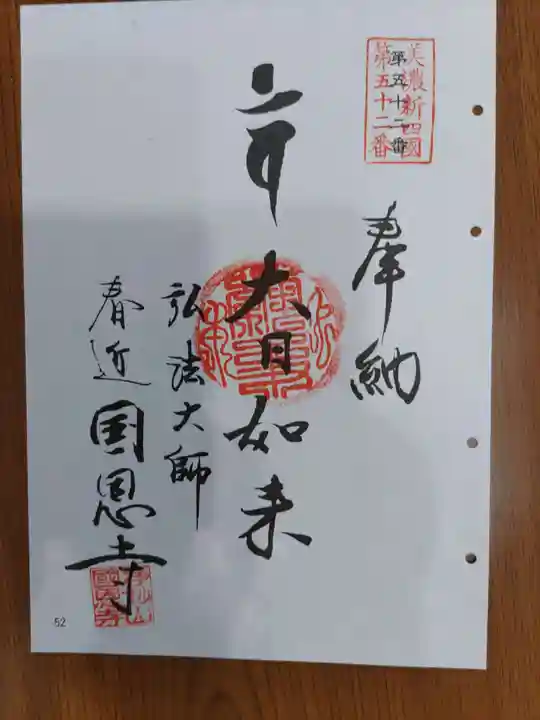 美濃新四國
第五十二番
第五十二番
奉納
大日如来
弘法大師
春近国恩寺
國恩寺
52